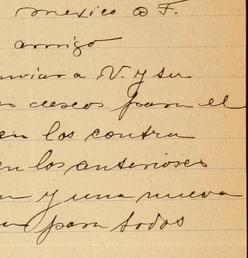 mexico D F.
amigo
enviar a V. y su
deseos para el
en los contra
en los anteriores
y una nueva
para todos